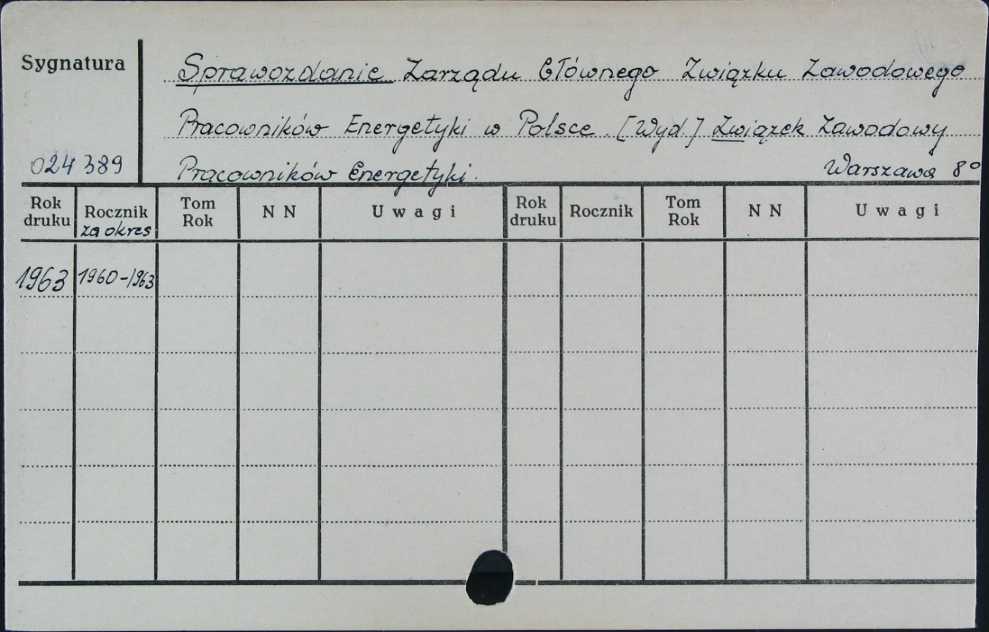 Sygnatura
Sprawozdanie Zarządu Głównego Związku Zawodowego
Pracowników Energetyki w Polsce. [Wyd.] Związek Zawodowy
024 389 Pracowników Energetyki. Warszawa 8°
Rok druku Rocznik za okres Tom Rok N N Uwagi Rok druku Rocznik Tom Rok N N Uwagi
1963 1960-1963